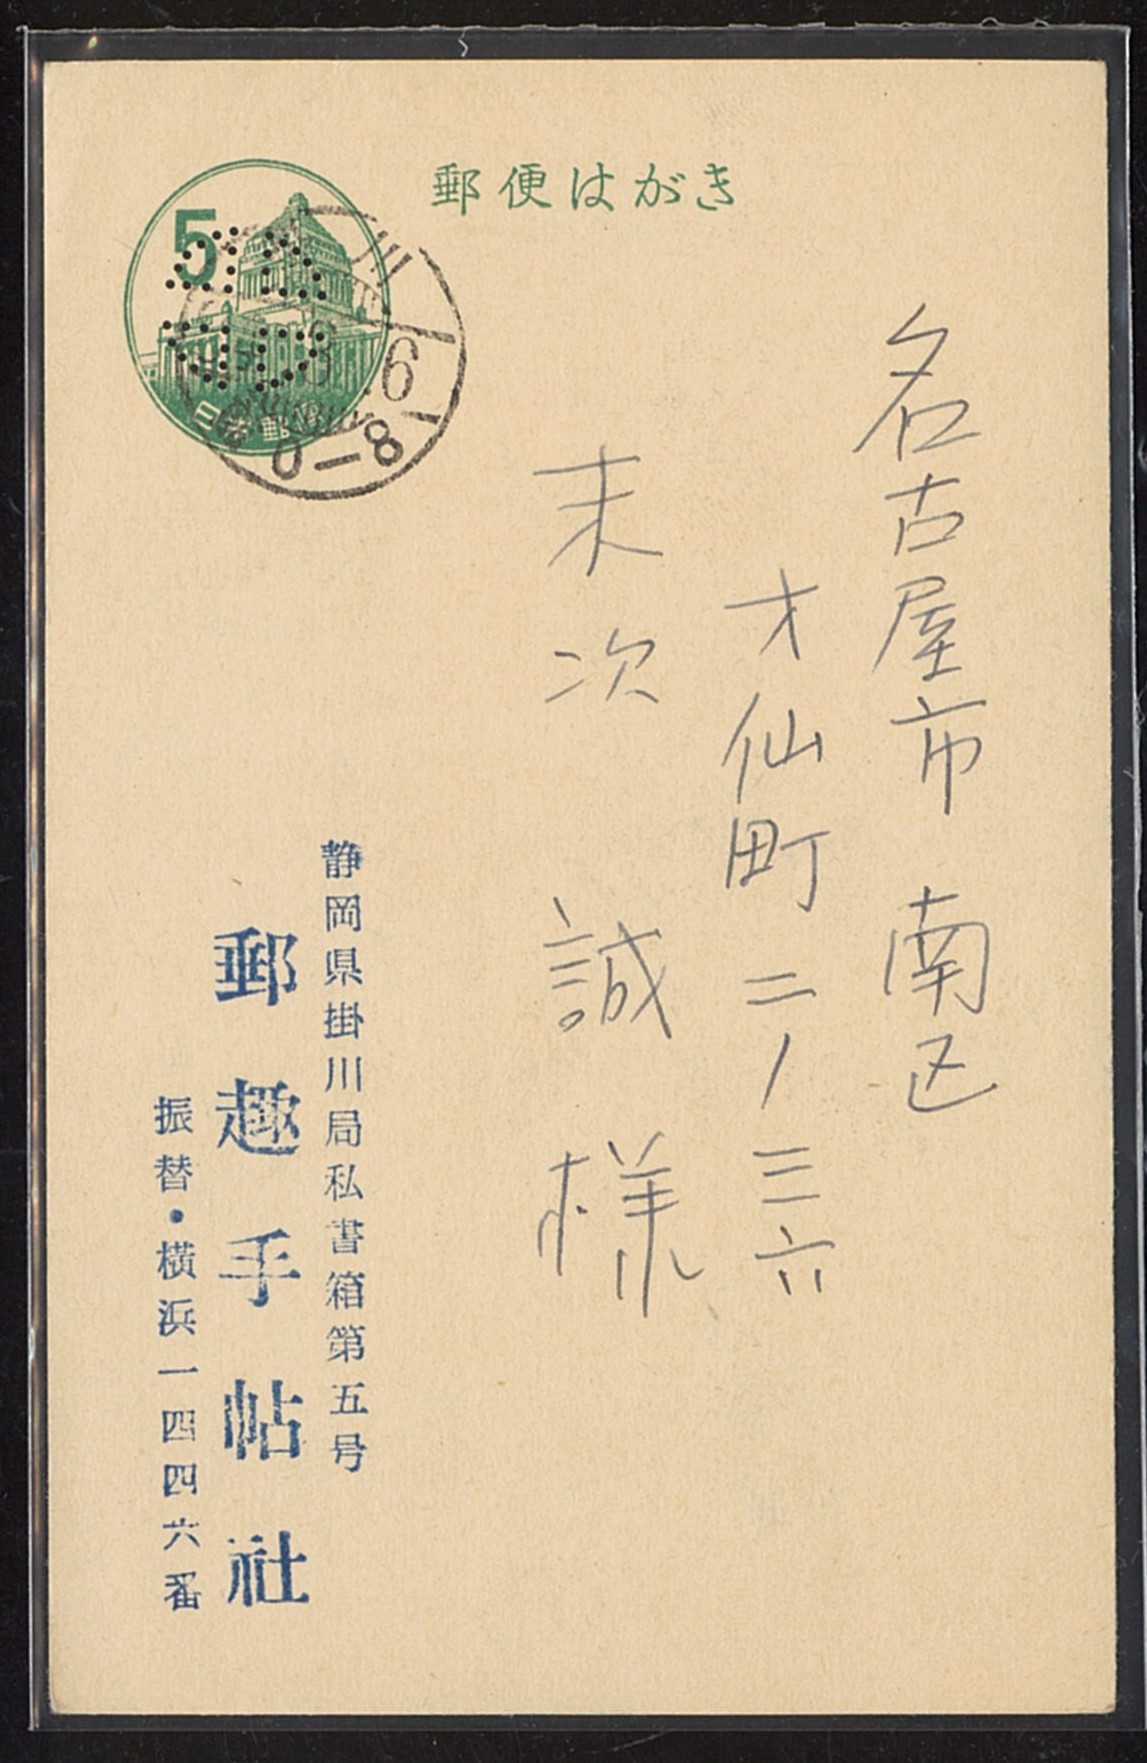 郵便はがき
5
川
6
0-8
名古屋市 南区
才仙町 二ノ三六
末次 誠 様
静岡県掛川局私書箱第五号
郵趣手帖社
振替・横浜一四四六番